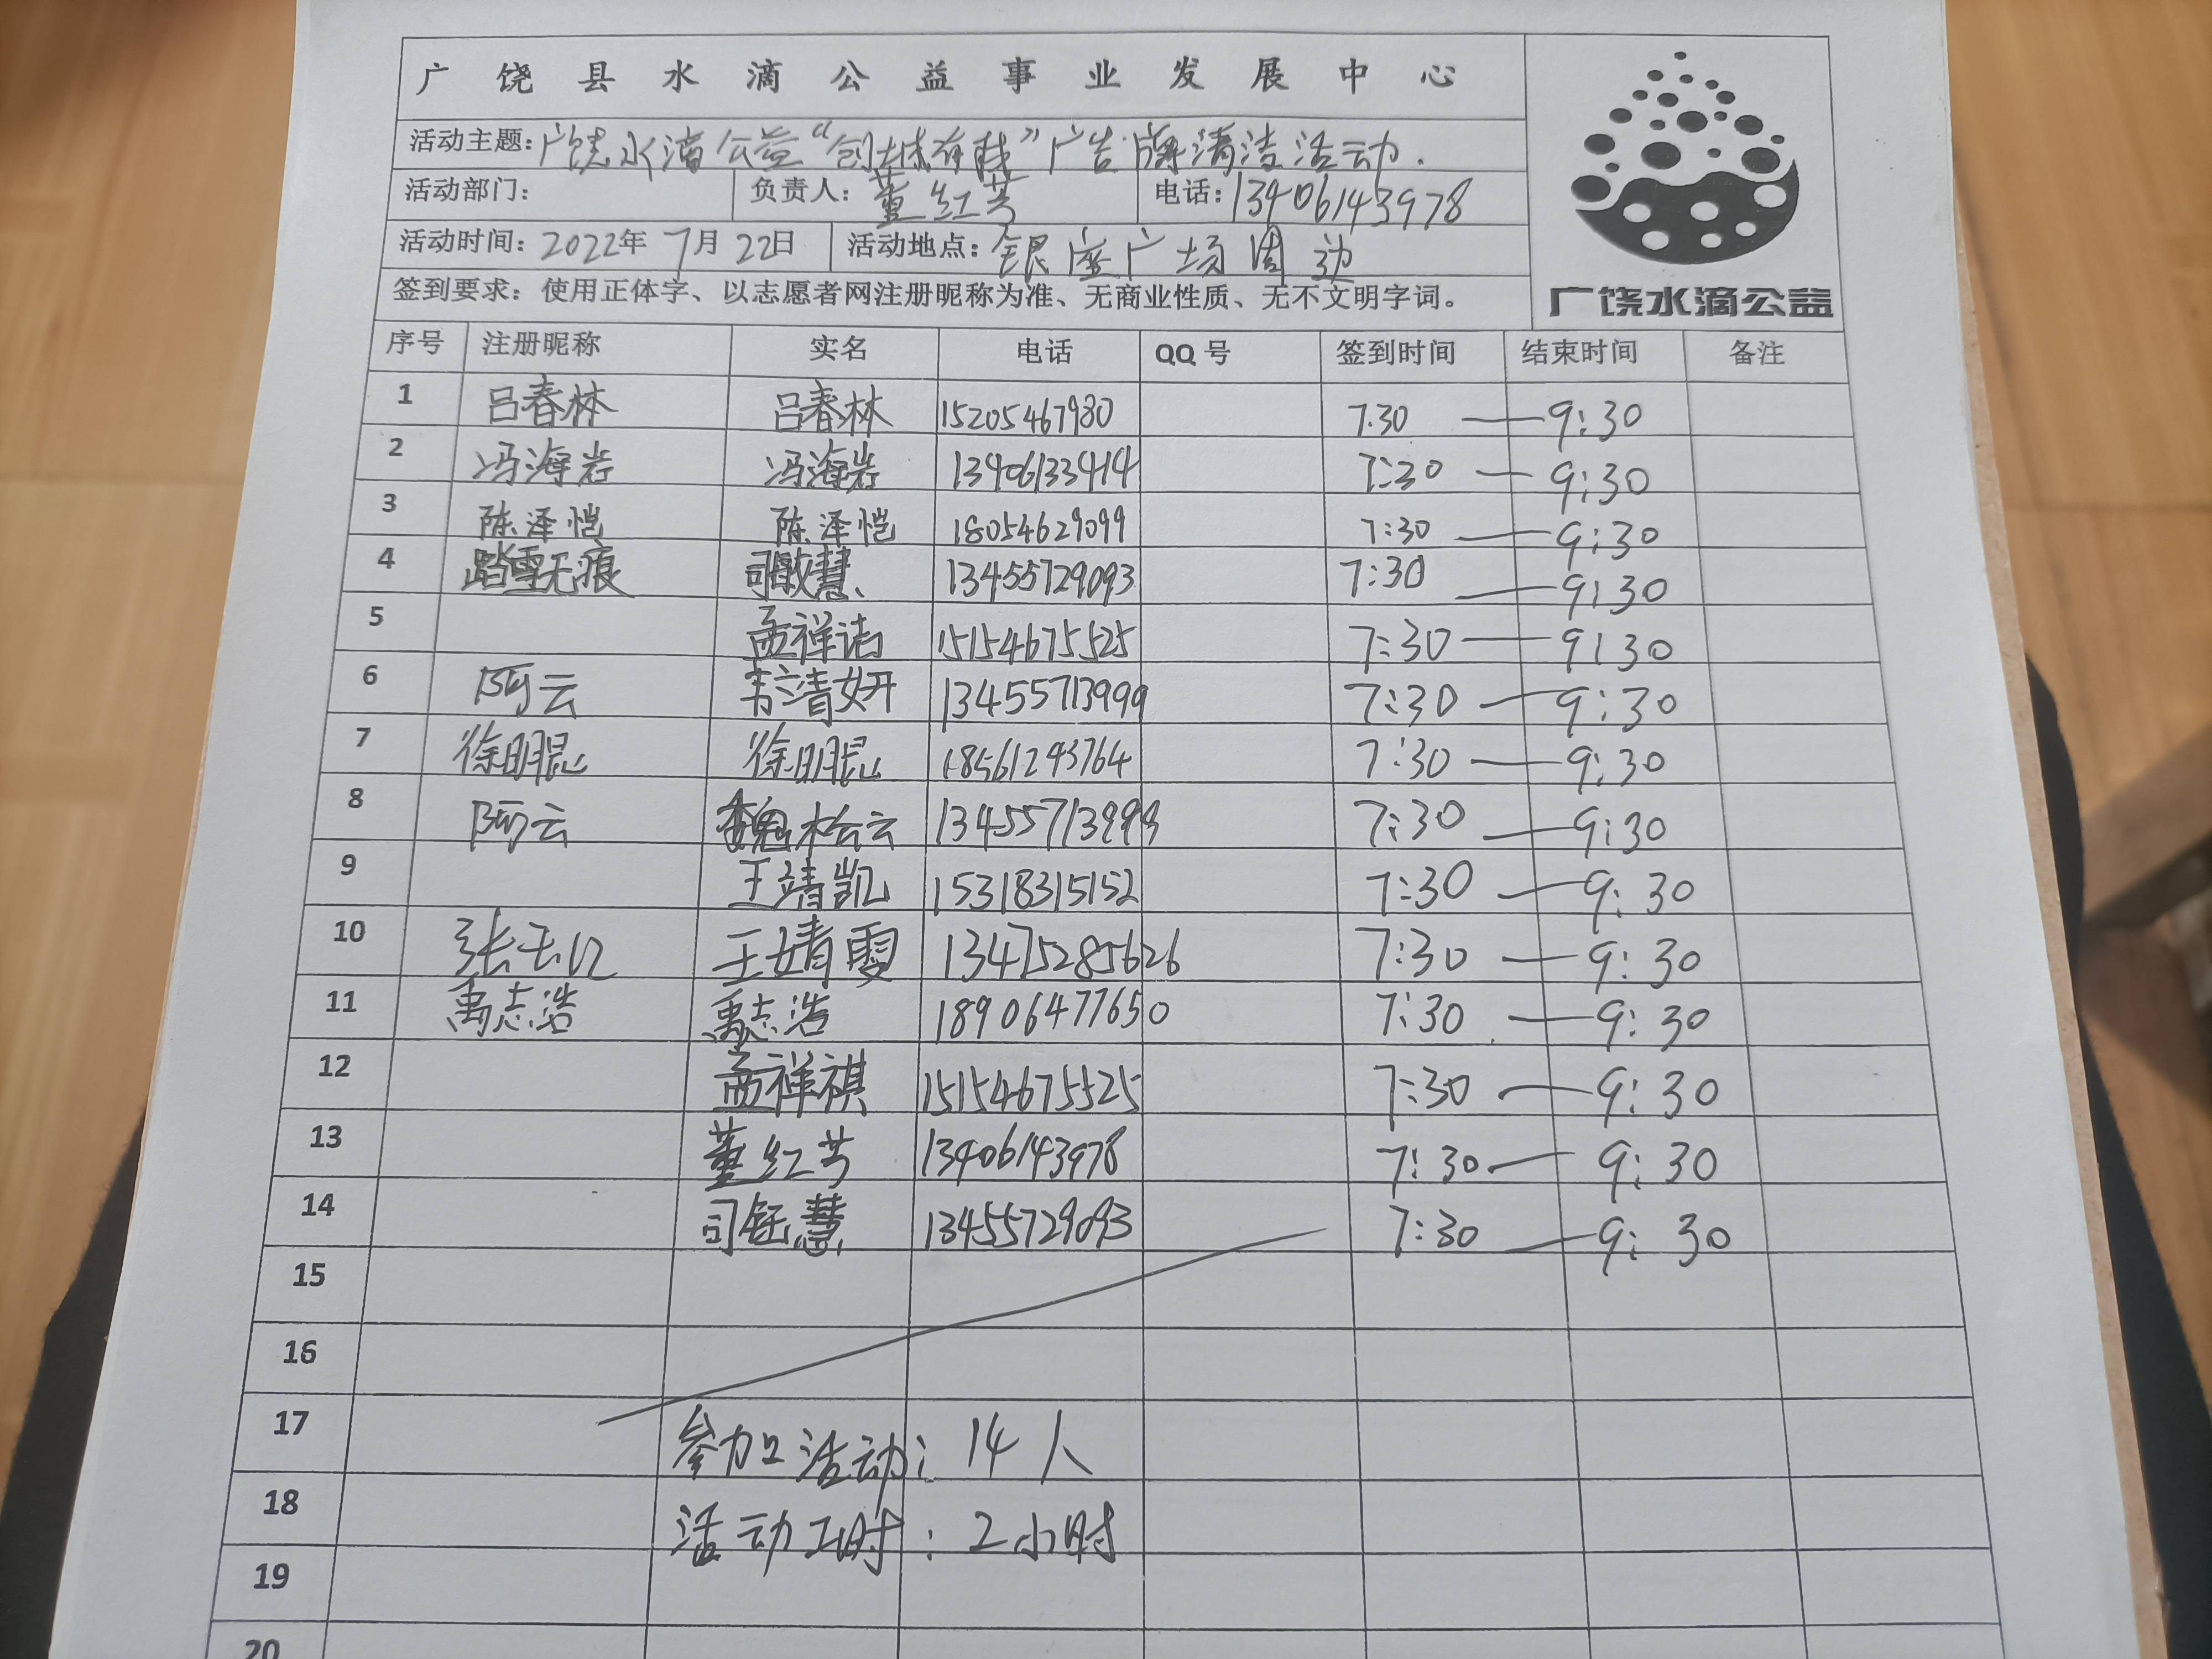 广饶县水滴公益事业发展中心
活动主题:广饶水滴公益“创城有我”广告牌清洁活动.
活动部门: 负责人: 董红芳 电话: 13406143978
活动时间: 2022年7月22日 活动地点: 银座广场周边
签到要求: 使用正体字、以志愿者网注册昵称为准、无商业性质、无不文明字词。
广饶水滴公益
序号 注册昵称 实名 电话 QQ号 签到时间 结束时间 备注
1 吕春林 吕春林 15205467980 7.30 — 9:30
2 冯海岩 冯海岩 13406133414 7:30 — 9:30
3 陈泽恺 陈泽恺 18054629099 7:30 — 9:30
4 踏雪无痕 司敏慧 13455729093 7:30 — 9:30
5 孟祥诺 15154675525 7:30 — 9:30
6 阿云 韦清妍 13455713999 7:30 — 9:30
7 徐明昆 徐明昆 18561293764 7:30 — 9:30
8 阿云 魏桧云 13455713999 7:30 — 9:30
9 王靖凯 15318315152 7:30 — 9:30
10 王婧雯 13475285626 7:30 — 9:30
11 禹志浩 禹志浩 18906477650 7:30 — 9:30
12 孟祥祺 15154675525 7:30 — 9:30
13 董红芳 13406143978 7:30 — 9:30
14 司钰慧 13455729093 7:30 — 9:30
15
16
17 参加活动: 14人
18 活动工时: 2小时
19
20